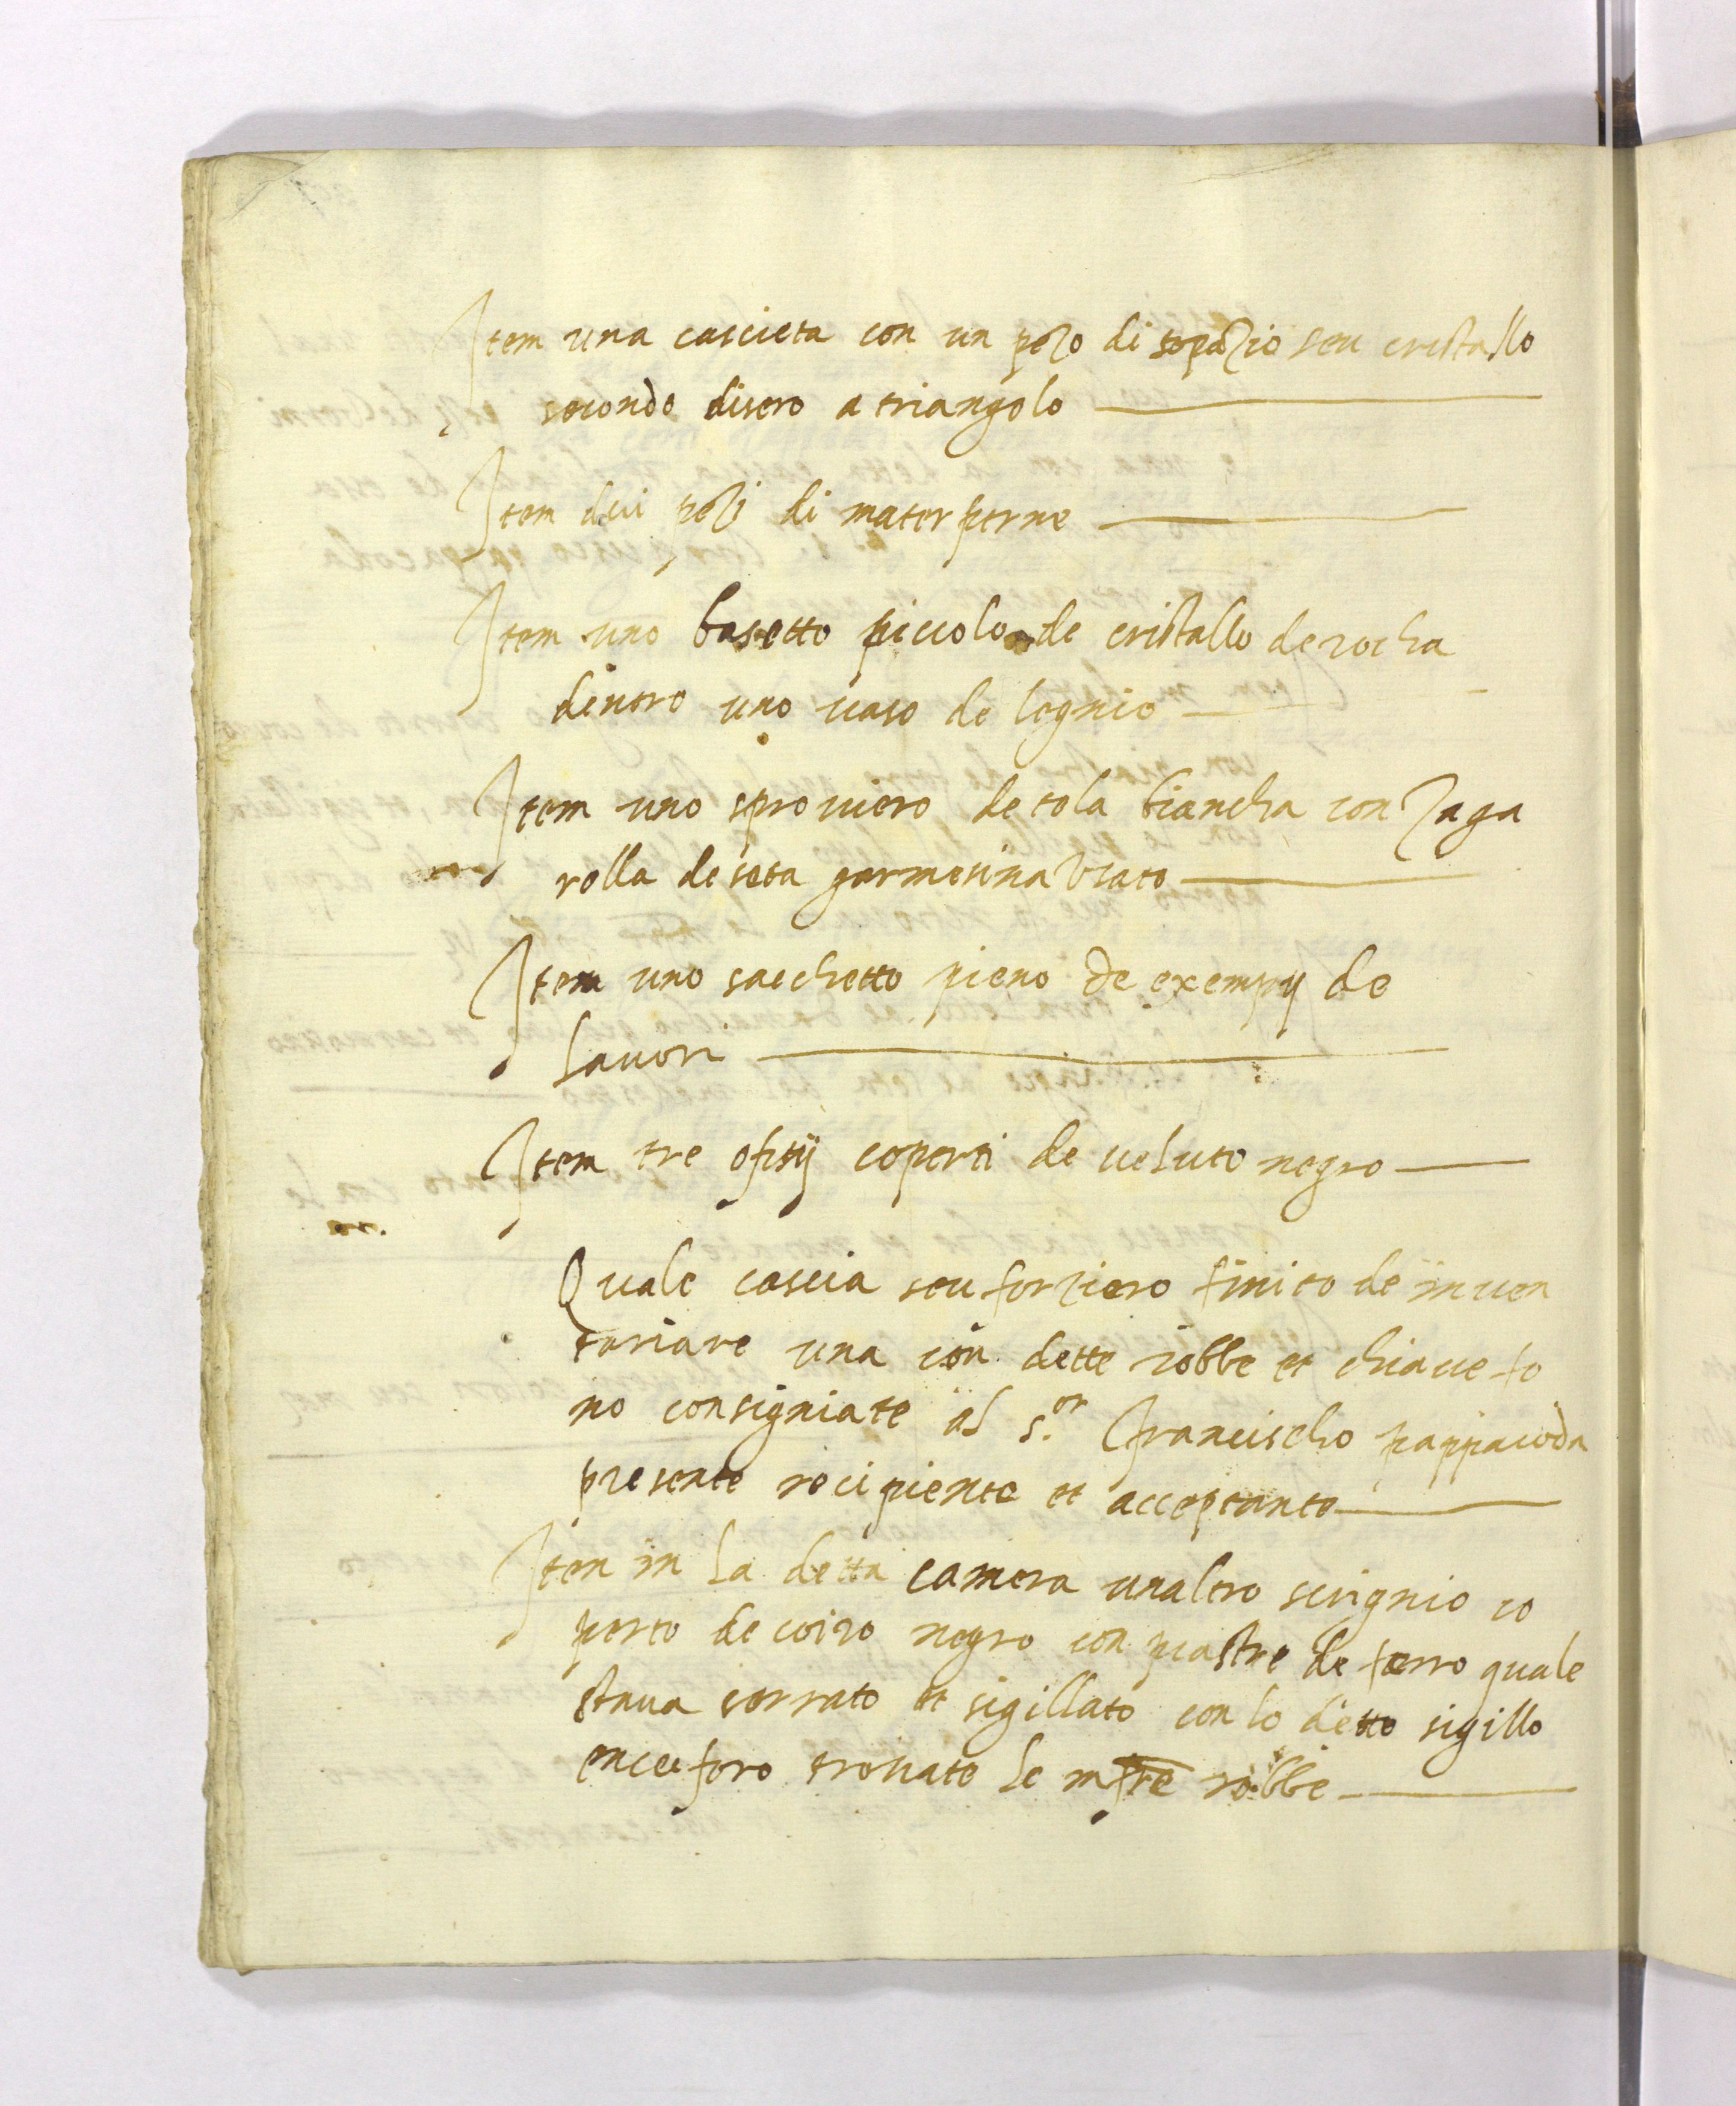 Item una cascieta con un pezo di topazio seu cristallo
secondo disero a triangolo
Item dui pezi di mater perne
Item uno basetto piccolo de cristallo de rocha
dintro uno uaso de lognio
Item uno sprouiero de tola biancha con zaga
rolla de seta garmesina usato
Item uno sacchetto pieno de exempij de
lauori
Item tre ofitij coperti de ueluto negro
Quale cascia seu forziero finito de inuen
tariare una con dette robbe et chiaue fo
no consigniate al s.or Francischo pappacoda
presente recipiente et acceptante
Item in la detta camera unaltro scrignio co
perto de coiro negro con piastre de ferro quale
staua serrato et sigillato con lo detto sigillo
 foro trouate le infre robbe